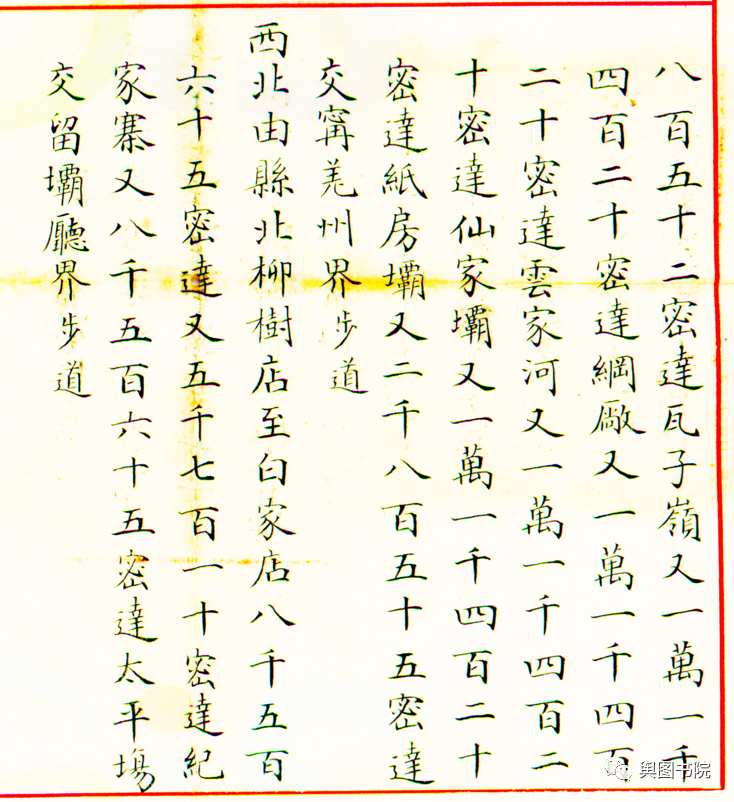 八百五十二密達瓦子嶺又一萬一千
四百二十密達綱厰又一萬一千四百
二十密達雲家河又一萬一千四百二
十密達仙家壩又一萬一千四百二十
密達紙房壩又二千八百五十五密達
交寗羌州界步道
西北由縣北柳樹店至白家店八千五百
六十五密達又五千七百一十密達紀
家寨又八千五百六十五密達太平塲
交留壩廳界步道
舆图书院